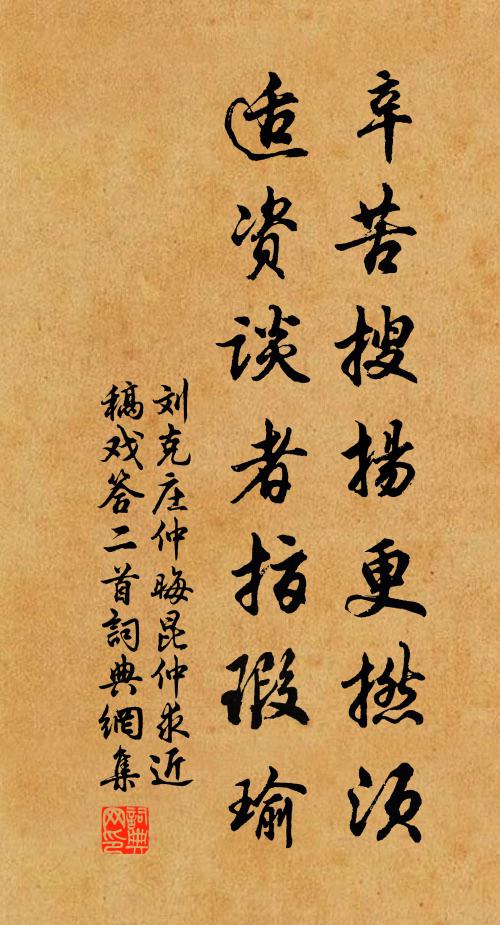 辛苦搜扬更撚须
适资谈者指瑕瑜
刘克庄仲晦昆仲求近
稿戏答二首詞典網集
詞典网印